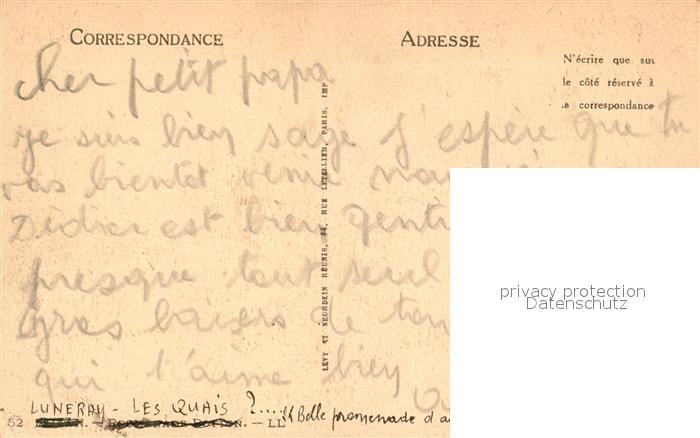 CORRESPONDANCE
ADRESSE
N'écrire que sur
le côté réservé à
la correspondance
cher petit papa
je suis bien sage j'espère que tu
vas bientot venir
Didier est bien genti
presque tout seul
gros baisers de ton
qui t'aime bien
LÉVY ET NEURDEIN RÉUNIS, 44, RUE LETELLIER, PARIS. IMP
privacy protection
Datenschutz
LUNERAY - LES QUAIS ?....
"Belle promenade d a
52
LL